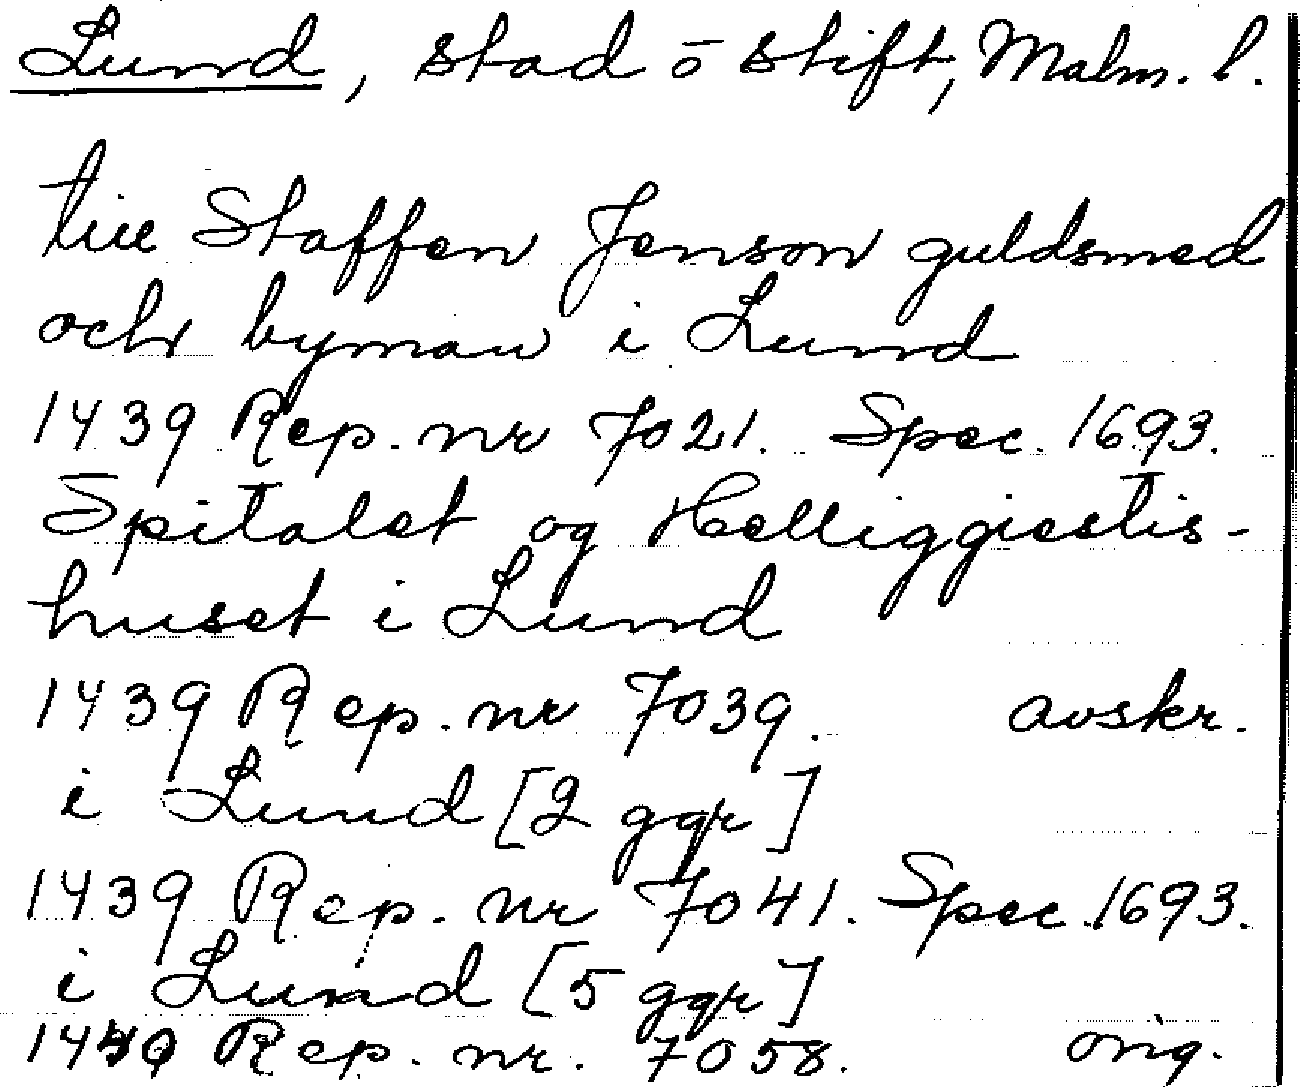 Lund, stad o stift, Malm. l.
till Staffen Jenson guldsmed
och byman i Lund
1439 Rep. nr 7021. Spec. 1693.
Spitalet og Helliggiestis-
huset i Lund
1439 Rep. nr 7039. avskr.
i Lund [2 ggr]
1439 Rep. nr 7041. Spec. 1693.
i Lund [5 ggr]
1440 Rep. nr. 7058. orig.